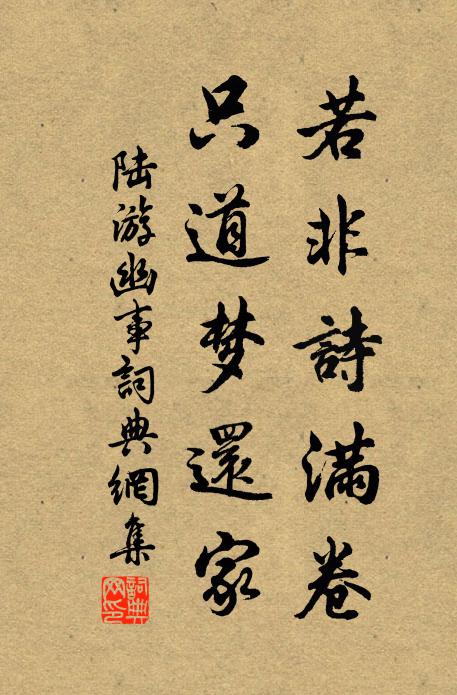 若非詩滿卷
只道梦還家
陆游幽事詞典網集
詞典网印